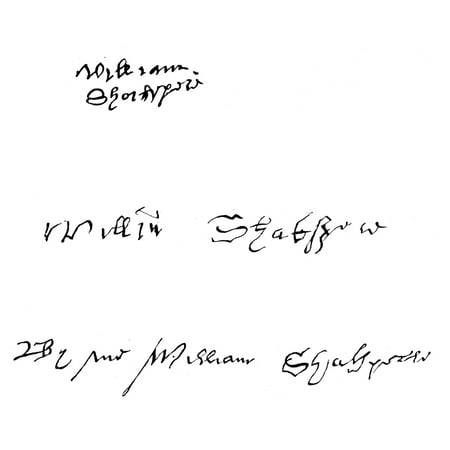 William
Shakspere
Willm Shakspere
By me William Shakspeare